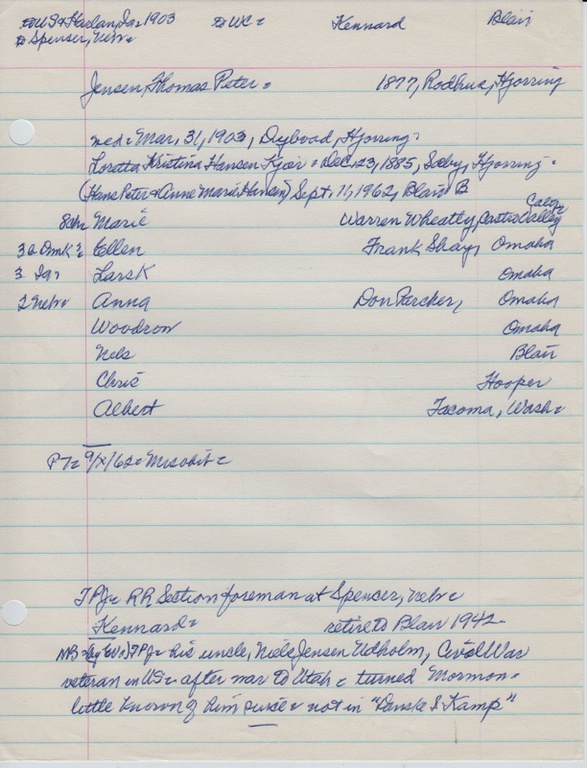 to US & Harlan, Ia: 1903 to WC: Kennard Blair
to Spenser, Nebr:
Jensen, Thomas Peter: 1877, Rodhus, Hjorring
wed: Mar, 31, 1903, Hjorring:
Loretta Kristina Hansen Kjær: Dec, 23, 1885, Sæby, Hjorring:
(Hans Peter & Anne Marie Hansen) Sept. 11, 1962, Blair B
8ch: Marie Warren Wheatly, Castro Valley Calif:
3 a Dmk: Ellen Frank Shay, Omaha
3 Ia: Lars K Omaha
2 Nebr: Anna Don Parcher, Omaha
Woodrow Omaha
Nels Blair
Chris Hooper
Albert Tacoma, Wash:
PT: 9/X/62: Mrs obit:
TPJ: RR Section foreman at Spencer, Nebr:
Kennard: retire to Blair 1942
NB: TPJ: his uncle, Niels Jensen Udholm, Civil War
veteran in US: after war to Utah: turned Mormon:
little known of him since: not in "Danske I Kamp"